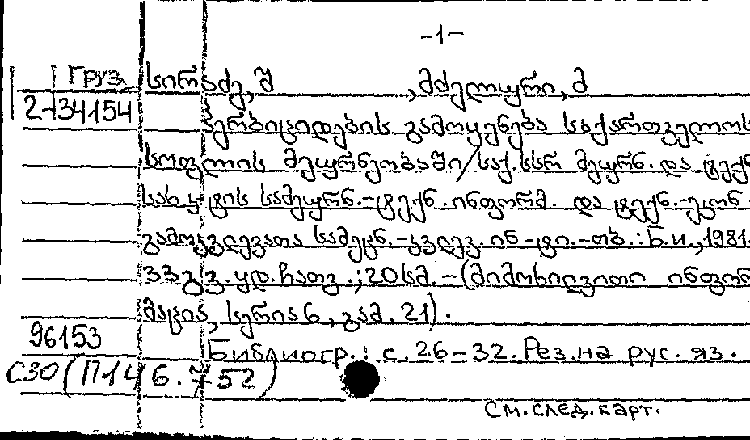 -1-
Груз. სირაძე, შ , მძელური, მ
2-34154
ჰერბიციდების გამოყენება საქართველოს
სოფლის მეურნეობაში/საქ. სსრ მეურნ. და ტექნ
სახ. სამეურნ.-ტექნ. ინფორმ. და ტექნ.-ეკონ.
გამოკვლევათა სამეცნ.-კვლევ. ინ-ტი.-თბ.: Б.и., 1981.
33 გვ. ყდ. ჩათვ.; 20 სმ. -(მიმოხილვითი ინფორ
მაცია, სერია 6, გამ. 21).
96153
Библиогр.: с. 26-32. Рез. на рус. яз.
С30(П146.752)
См. след. карт.